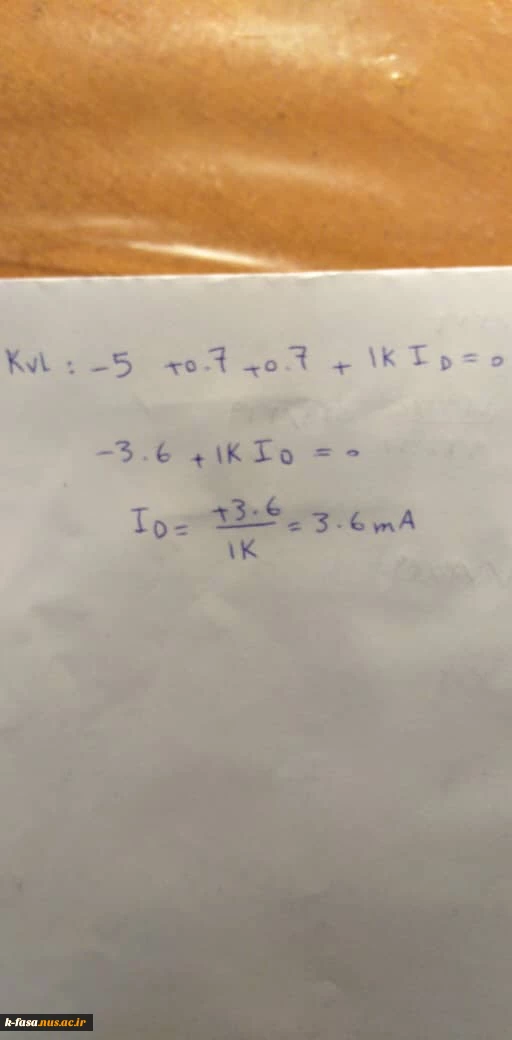 KVL : -5 +0.7 +0.7 + 1K I D = 0
-3.6 + 1K I D = 0
I D = +3.6 / 1K = 3.6 mA
k-fasa.nus.ac.ir